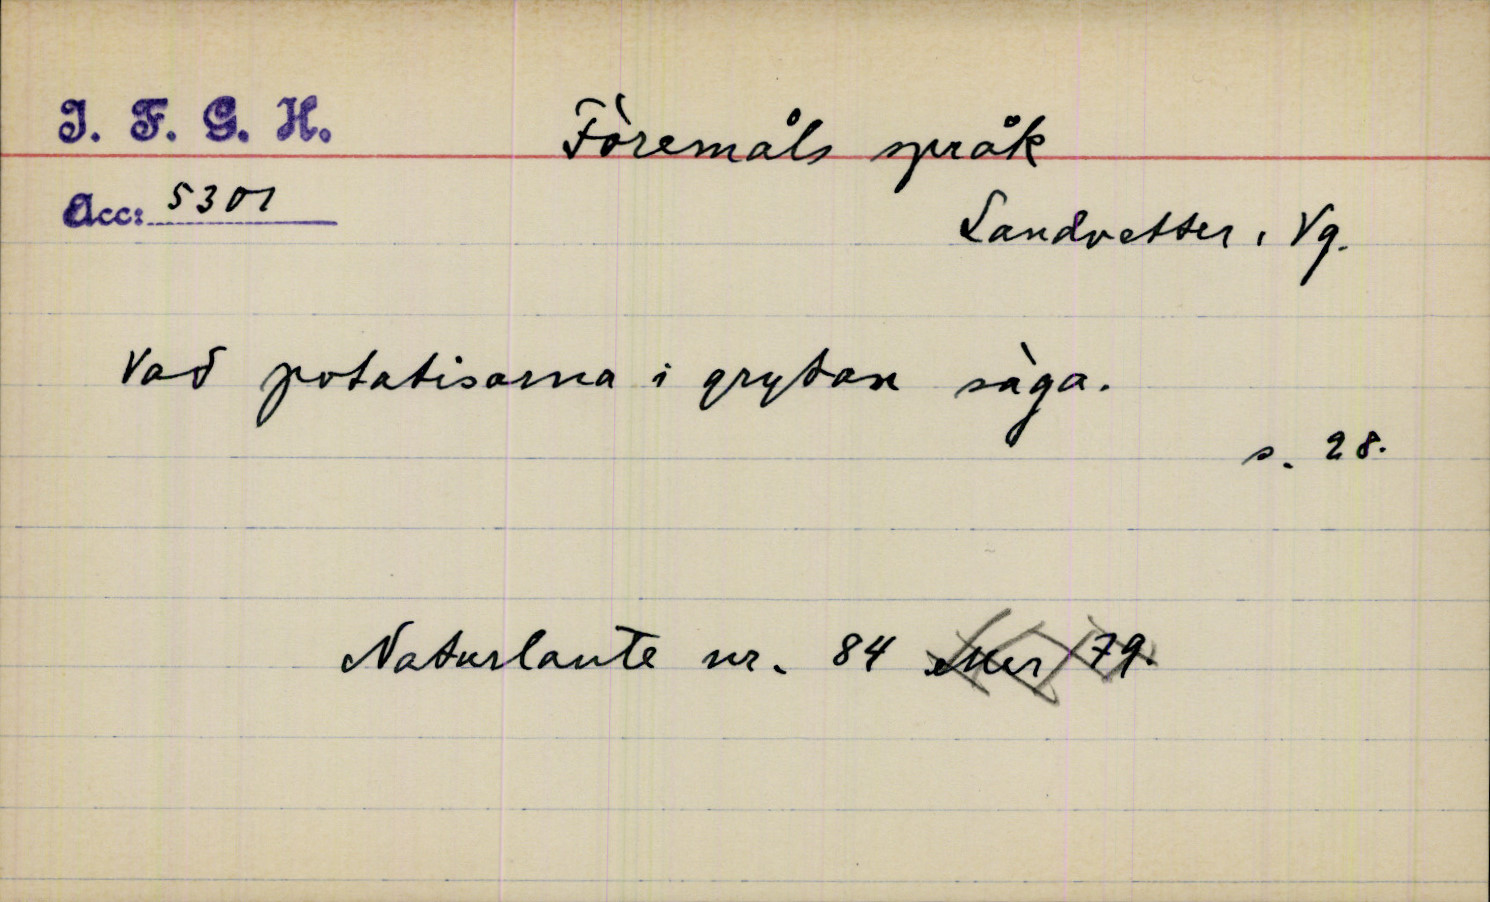 I. F. G. H.
Föremåls språk
Acc: 5301
Landvetter, Vg.
Vad potatisarna i grytan säga.
s. 28.
Naturlaute nr. 84 eller 79.